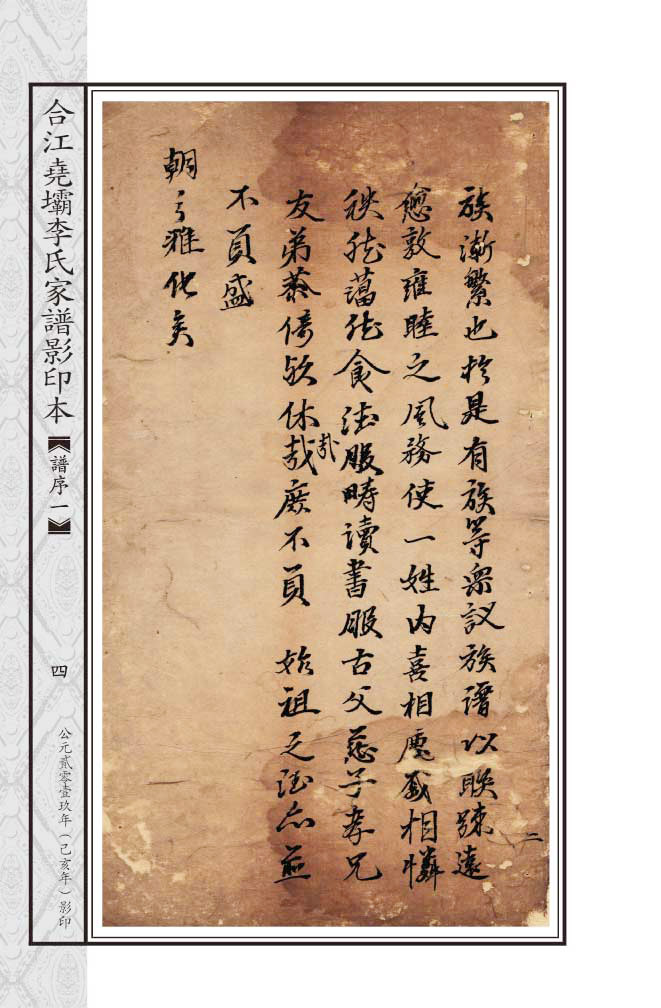 族漸繁也於是有族等眾議族譜以聯疎遠
愈敦雍睦之風務使一姓內喜相慶戚相憐
秩然藹然食德服疇讀書服古父慈子孝兄
友弟恭倚欤休哉庶不負 始祖之德亦並
哉
不負盛
朝之雅化矣
二
合江堯壩李氏家譜影印本
譜序一
四
公元貳零壹玖年(己亥年)影印